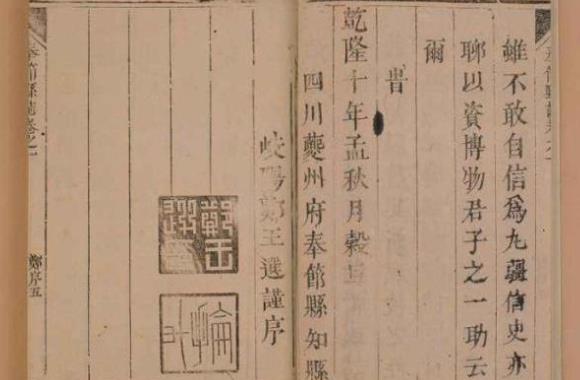 雖不敢自信為九疆信史亦
聊以資博物君子之一助云
爾
旹
乾隆十年孟秋月穀旦
四川夔州府奉節縣知縣
岐陽鄭王選謹序
鄭序五